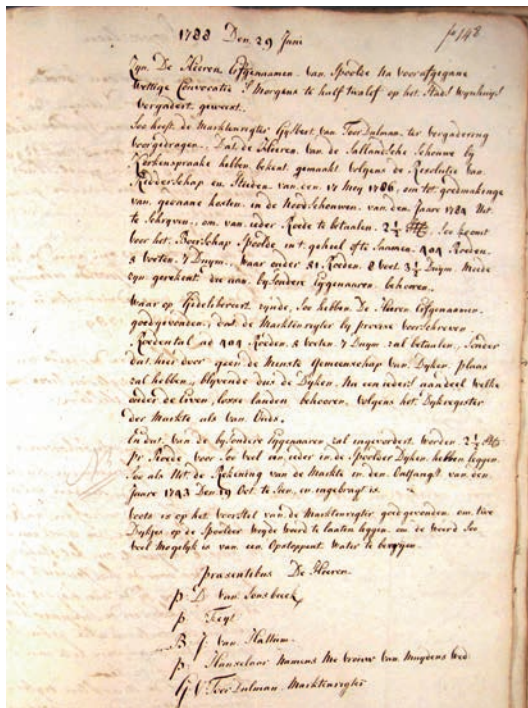 1788 Den 29 Juni
p 148
Zyn De Heeren Erfgenaamen van Spoolde Na voorafgegane
Wettige Convocatie S Morgens te half twalef op het Stads Wynhuys
Vergadert geweest.
Soo heeft de Marktenrigter Gysbert van Toor Dulman ter vergadering
voorgedragen, Dat de Heeren van de Sallandsche Schouwe by
Kerkenspraake hebben bekent gemaakt volgens de Resolutie van
Ridderschap en Steeden van den 17 Mey 1786, om tot goedmakinge
van gedaane kosten in de Noodschouwen van den Jaare 1784 Uit
te Schryven, om van ieder Roede te betaalen 2½ Soo komt
voor het Boerschap Spoolde in t geheel ofte Saamen 404 Roeden
8 voeten 7 Duym, waar onder 81 Roeden 8 voet 3½ Duym Meede
zyn gerekent die aan bysondere Eygenaaren behooren.
Waar op Gedelibereert zynde, Soo hebben De Heeren Erfgenaamen
goedgevonden, dat de Marktenrigter by provisie voorschreven
Roedental ad 404 Roeden 8 voeten 7 Duym zal betaalen, Sonder
dat hier door geen de Minste Gemeenschap van Dyken plaas
zal hebben, blyvende dus de Dyken Na een ieders aandeel welke
onder de Erven, losse landen behooren, volgens het Dykregister
der Markte als van Ouds.
En dat van de bysondere Eygenaaren zal ingevordert worden 2½
Pr Roede voor Soo veel een ieder in de Spoolder Dyken hebben leggen
Soo als Uit de Rekening van de Markte in den Ontfangst van den
Jaare 1743 Den 19 Oct. te Sien, en ingebragt is.
Voots is op het voorstel van de Marktenrigter goedgevonden om twe
Dykjes op de Spoolder Weyde Weerd te laaten leggen om de Weerd Soo
veel Mogelyk is van een Opstoppent Water te bevryen
NB
Præsentibus De Heeren
p D van Sonsbeek
p
B J van Hattum
p Hanselaar Namens Me vrouw van Muydens Wed
G V Toor Dulman Marktenrigter